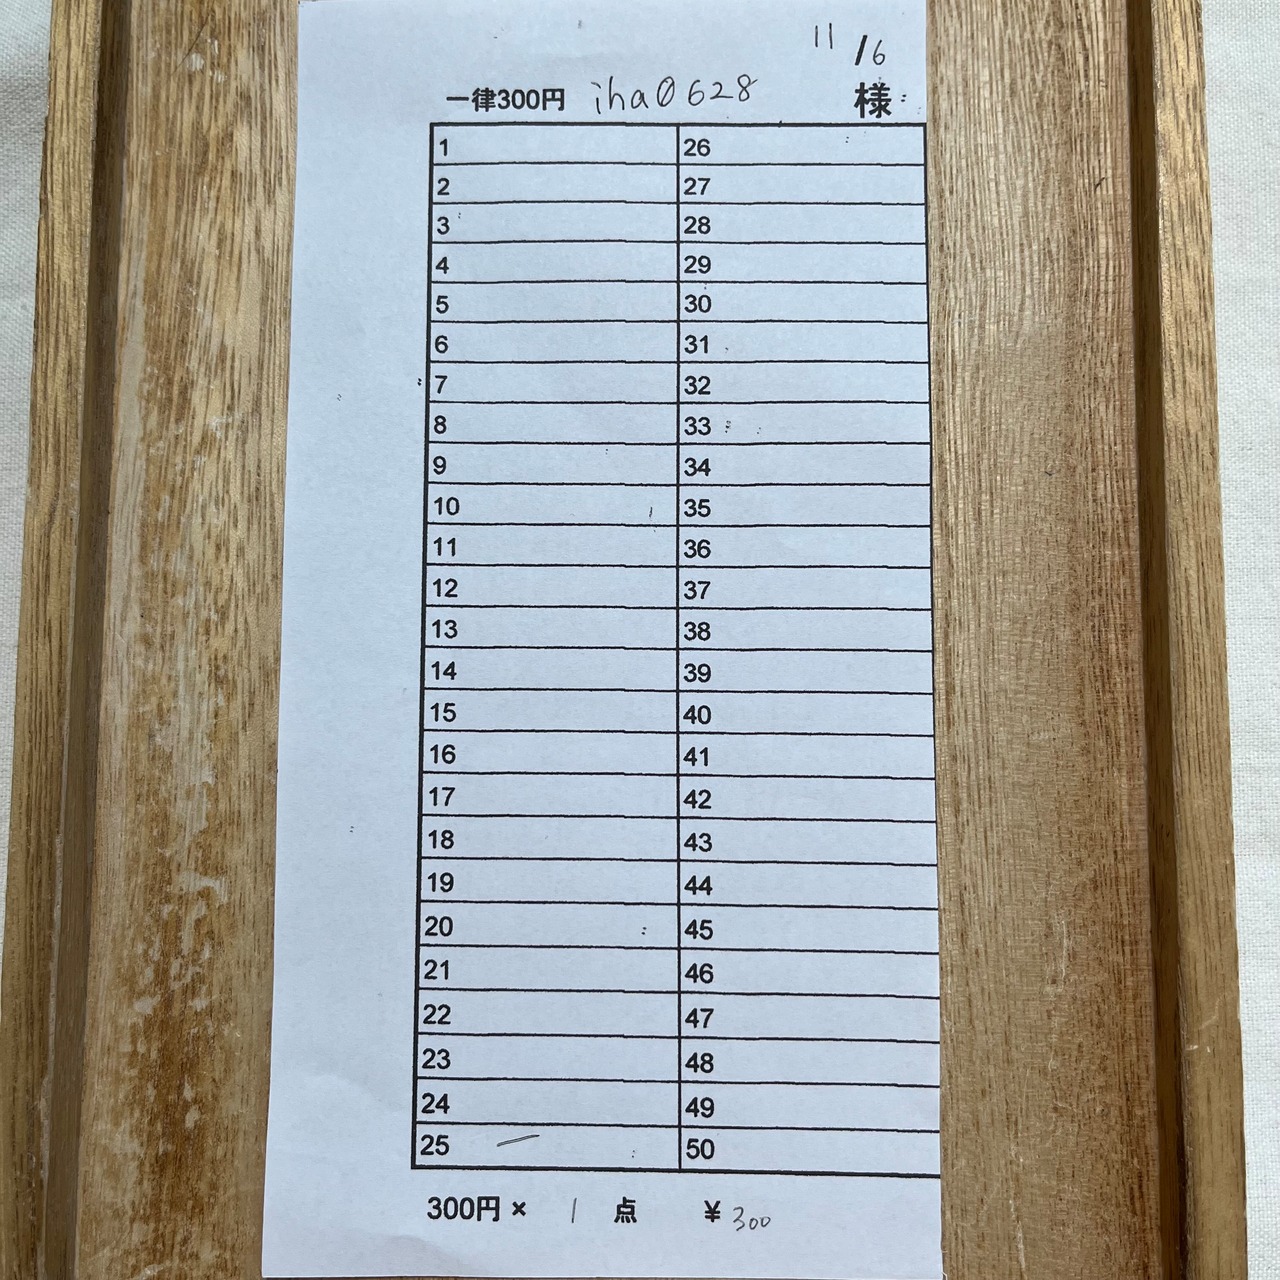 11/6
一律300円 iha0628 様
1 26
2 27
3 28
4 29
5 30
6 31
7 32
8 33
9 34
10 35
11 36
12 37
13 38
14 39
15 40
16 41
17 42
18 43
19 44
20 45
21 46
22 47
23 48
24 49
25 — 50
300円 × 1 点 ¥300